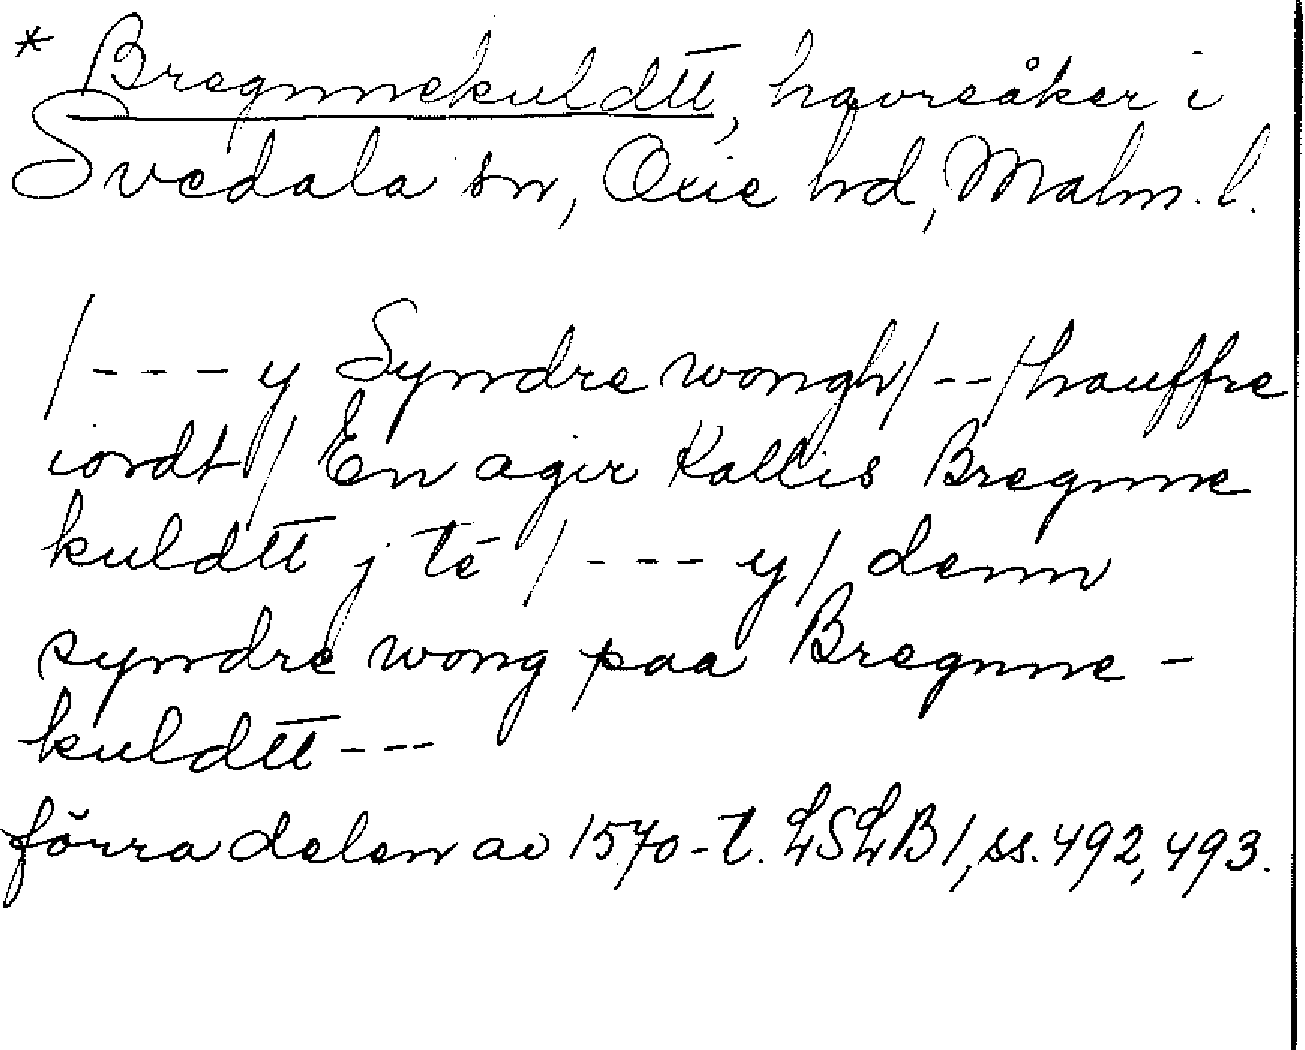 * Bregnnekuldtt, havreåker i
Svedala sn, Oxie hd, Malm. l.
/--- y Syndre wongh/--/hauffre
iordt/ En agir Kallis Bregnne
kuldtt j té /--- y/ denn
syndre wong paa Bregnne-
kuldtt---
förra delen av 1570-t. LSLB 1, ss. 492, 493.